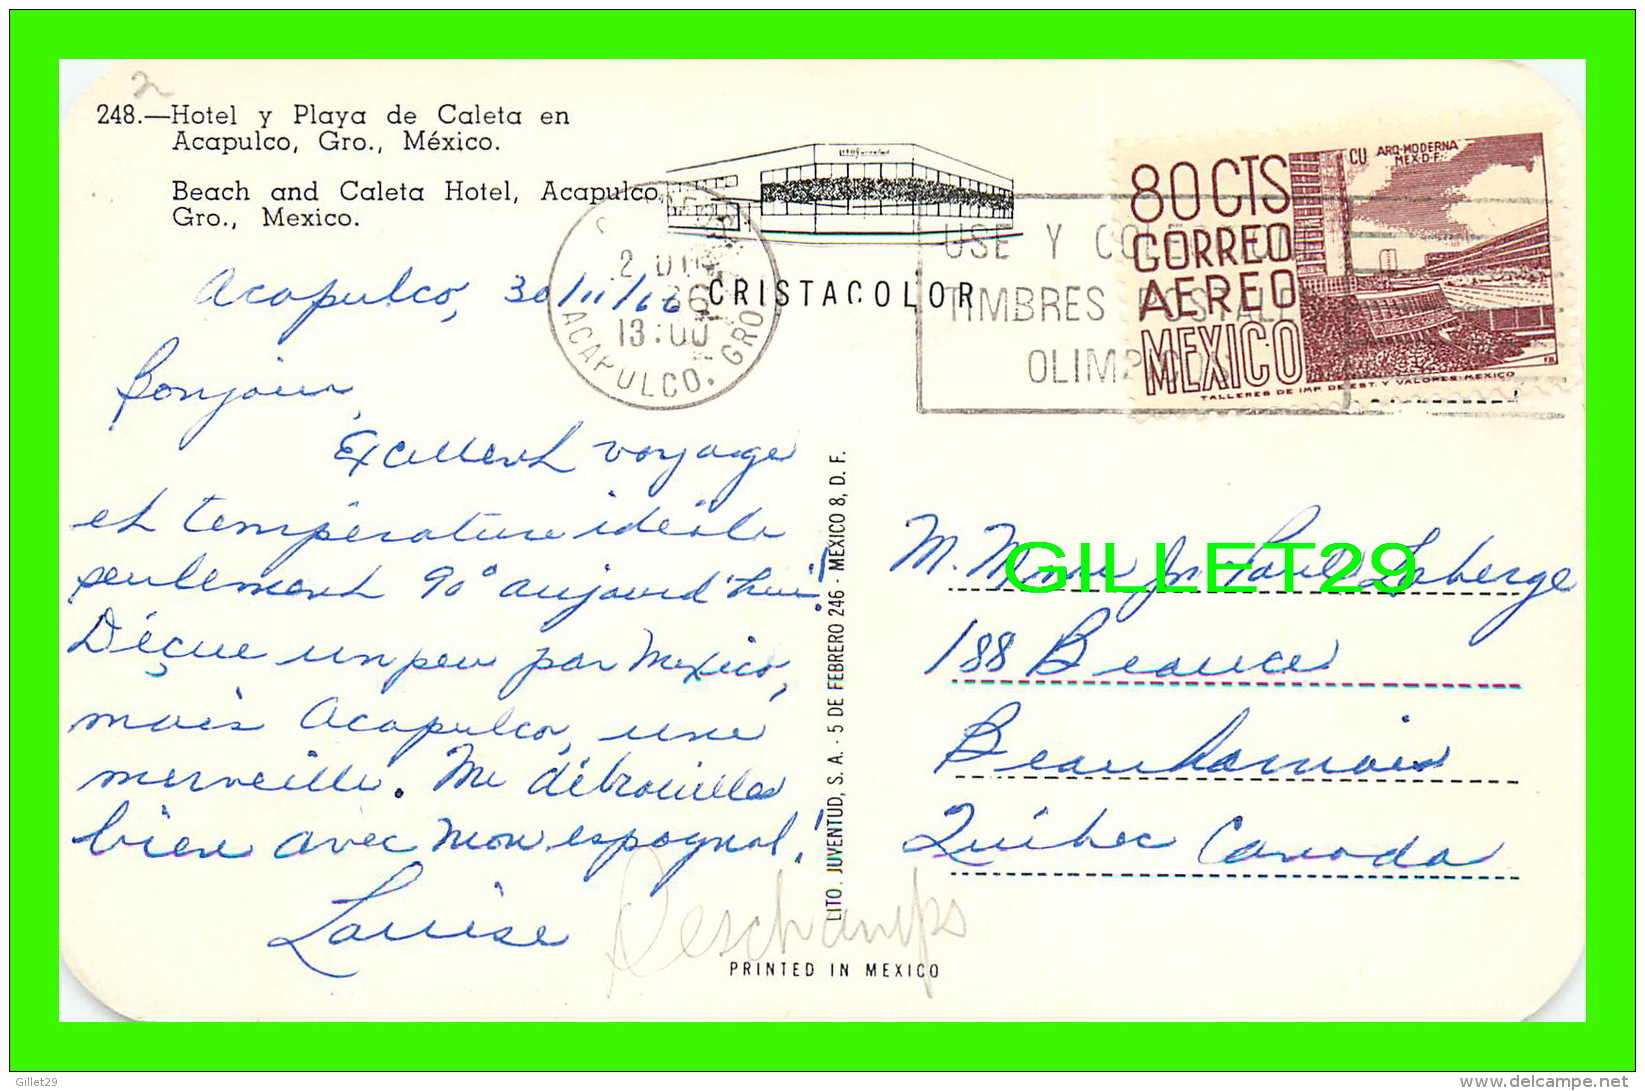 248.—Hotel y Playa de Caleta en
Acapulco, Gro., México.
Beach and Caleta Hotel, Acapulco,
Gro., Mexico.
CRISTACOLOR
13:00
ACAPULCO, GRO
USE Y COLECC
TIMBRES POSTALES
OLIMPICOS
80 CTS
CORREO
AEREO
MEXICO
CU ARQ-MODERNA
MEX-D-F-
TALLERES DE IMP. DE EST. Y VALORES-MEXICO
Acapulco, 30/11/66
Bonjour,
Excellent voyage
et température idéale
seulement 90° aujourd'hui!
Déçue un peu par Mexico,
mais Acapulco, une
merveille. Me débrouilles
bien avec mon espagnol!
Louise
Deschamps
LITO. JUVENTUD, S. A. - 5 DE FEBRERO 246 - MEXICO 8, D. F.
PRINTED IN MEXICO
M. Mme Jn Paul Laberge
188 Beauce
Beauharnois
Québec Canada
GILLET29
Gillet29
www.delcampe.net